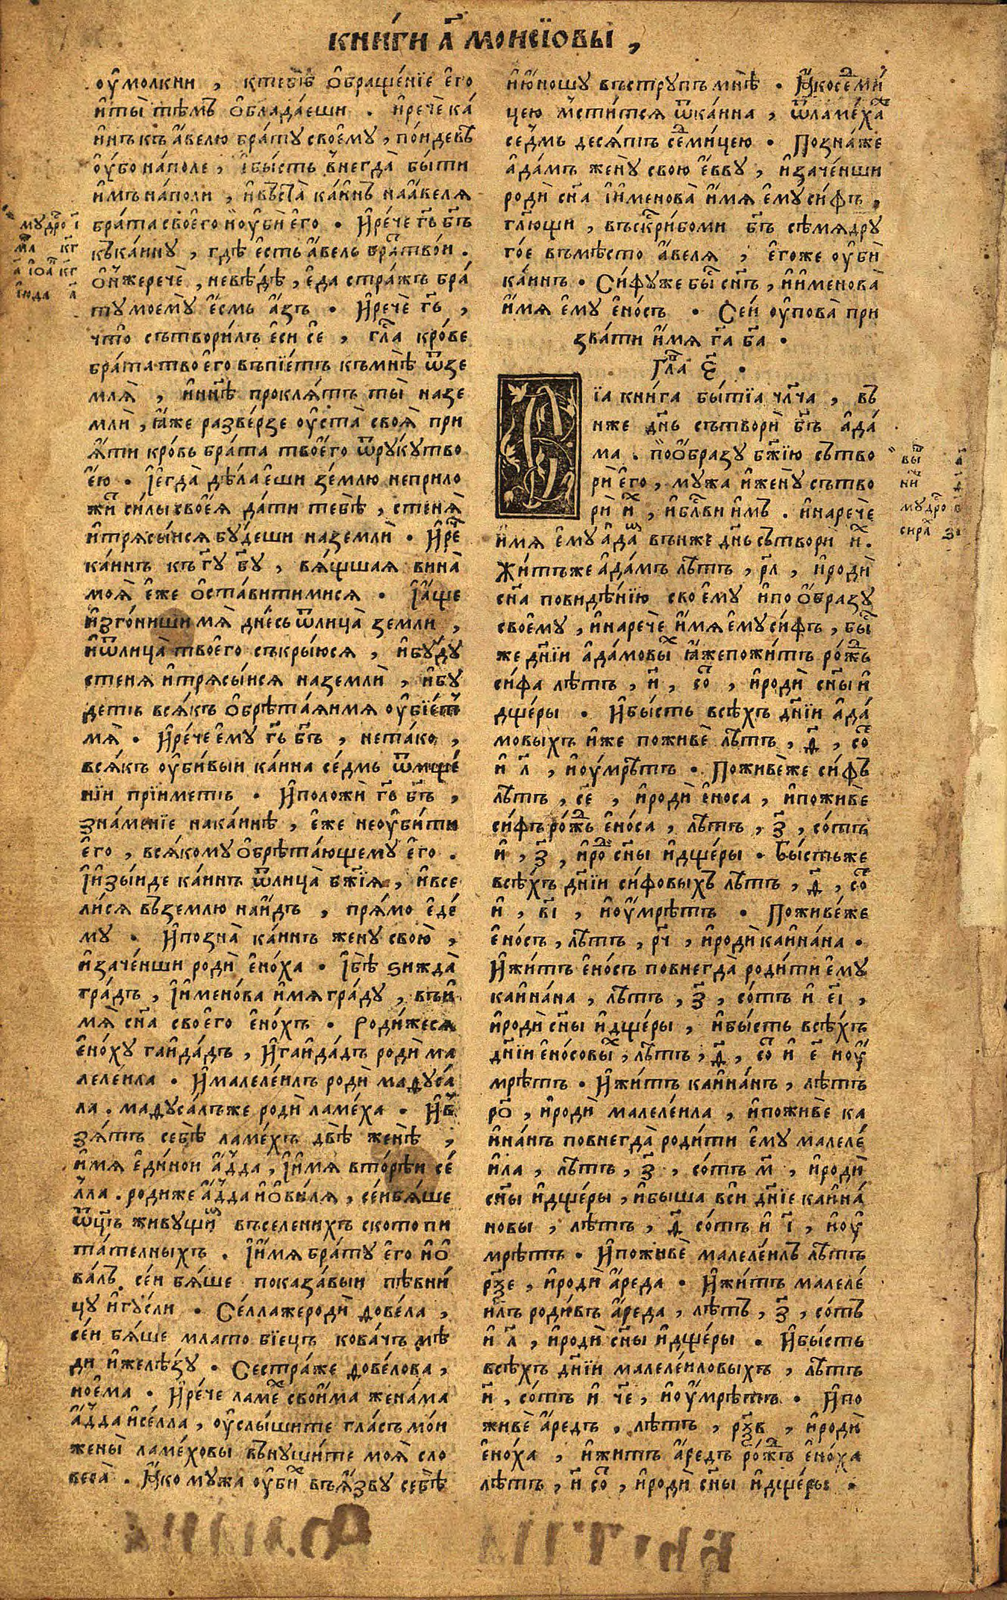 КНИ́ГИ А҃ МОИСЇОВЫ ,
оу҆молкни , к̾тебѣ ѡ҆браще́нїе є҆го̀
и҆ты̀ тѣ́мъ ѡ҆блада́еши . и҆речѐ ка́
инъ къ а҆́велю бра́ту своемꙋ , по́идевѣ
оу҆́бо на́поле , і҆бы́сть внегда̀ бы́ти
и҆́мъ на́поли , и҆въста̀ ка́инъ на а҆́веля
бра́та своего̀ и҆оу҆бѝ є҆го̀ . И҆речѐ гь҃ бг҃ъ
къка́инꙋ , гдѣ̀ є҆́сть а҆́вель бра́тъ тво́и .
ѡ҆́нже речѐ , невѣ́дѣ , є҆да̀ стра́жъ бра́
ту моемꙋ̀ є҆́смь а҆́зъ . И҆речѐ гь҃ ,
что̀ сътвори́лъ є҆сѝ сѐ , гла҃ кро́ве
бра́та твоего̀ въпїе́тъ къ мнѣ̀ ѿзе
мля̀ , и҆нн҃ѣ про́клятъ ты̀ на зе
млѝ , ꙗ҆́же разве́рзе оу҆ста̀ своя̀ при
я́ти кро́вь бра́та твоего̀ ѿрꙋкꙋ̀ тво
є҆ю̀ . І҆егда̀ дѣ́лаеши зе́млю неприло
жи́ си́лы своея̀ да́ти тебѣ̀ , стеня̀
и҆тряси́ися бꙋ́деши на землѝ . И҆ре҇
ка́инъ къ гꙋ҃ бг҃ꙋ , вя́щшая вина̀
моя̀ є҆́же ѡ҆ста́витимися . І҆а҆́ще
и҆зго́ниши мя̀ дне́сь ѿ лица̀ землѝ ,
и҆ѿлица̀ твоего̀ съкры́юся , и҆бꙋ́дꙋ
стеня̀ и҆тряси́ися на землѝ , и҆бꙋ́
детъ вся́къ ѡ҆брѣта́яимя оу҆бїе́тъ
мя̀ . И҆речѐ є҆мꙋ̀ гь҃ бг҃ъ , не та́ко ,
вся́къ оу҆би́выи ка́ина се́дмь ѿмще́
нїи прїи́метъ . И҆положѝ гь҃ бг҃ъ ,
зна́менїе на ка́инѣ , є҆́же не оу҆би́ти
є҆го̀ , вся́комꙋ ѡ҆брѣта́ющемꙋ є҆го̀ .
І҆изы́иде ка́инъ ѿлица̀ бж҃їя , и҆все
ли́ся въ зе́млю на́идъ , пря́мо є҆де́
мꙋ . И҆позна̀ ка́инъ женꙋ̀ свою̀ ,
и҆заче́нши родѝ є҆но́ха . І҆бѣ̀ ѕи́ждаѝ
гра́дъ , І҆и҆менова̀ и҆́мя гра́дꙋ , въ и҆́
мя сн҃а своего̀ є҆но́хъ . Роди́жеся
є҆но́хꙋ гаида́дъ , И҆гаида́дъ родѝ ма
леле́ила . И҆малеле́илъ родѝ мадꙋса́
ла . мадꙋса́лъже родѝ ламе́ха . И҆въ
зя́тъ себѣ̀ ламе́хъ двѣ̀ женѣ̀ ,
и҆́мя є҆ди́нои а҆́дда , І҆и҆́мя вто́рѣи се́
лла . роди́же а҆́дда і҆ѡви́ля , се́ибя́ше
ѿц҃ъ живꙋ́щи҇ въ селе́нихъ ското пи
та́телныхъ . І҆и҆́мя бра́тꙋ є҆го̀ и҆ѡ
ва́лъ , се́и бя́ше показа́выи пѣвни́
цꙋ и҆гꙋ́сли . Се́ллаже родѝ до́вела ,
се́и бя́ше мла́то бі́ецъ ко́вачъ мѣ́
ди и҆желѣ́зꙋ . Сестра́же до́велова ,
ное́ма . И҆речѐ ламе҇ свои́ма жена́ма
а҆́дда и҆се́лла , оу҆слы́шите гла́съ мо́и
жены̀ ламе́ховы вънꙋши́те моя̀ сло
веса̀ . Ꙗ҆́ко мꙋ́жа оу҆би҇ въ я҆́звꙋ себѣ̀
и҆ю҆́ношꙋ въстрꙋ́пъ мнѣ̀ . Ꙗ҆́косе҇ми́
цею м҆сти́тся ѿка́ина , ѿламе́ха
се́дмь деся́тъ седми́цею . Позна́же
а҆да́мъ женꙋ̀ свою̀ є҆́ввꙋ , и҆заче́нши
родѝ сн҃а і҆и҆менова̀ и҆́мя є҆мꙋ̀ си́фъ ,
гл҃ющи , въскр҇иби́ми бг҃ъ сѣ́мя дрꙋ
го́е въмѣ́сто а҆́веля , є҆го́же оу҆бѝ
ка́инъ . Си́фꙋже бы҇ сн҃ъ , и҆именова̀
и҆́мя є҆мꙋ̀ є҆но́съ . Се́и оу҆пова̀ при
зва́ти и҆́мя га҃ ба҃ .
Гла҃ є҃ .
Сїа кни́га бытїа̀ чл҃ча , въ
ниже дн҃ь сътворѝ бг҃ъ а҆да́
ма . поѡ҆́бразꙋ бж҃їю съ́тво
рѝ є҆го̀ , мꙋ́жа и҆женꙋ̀ съ́тво
рѝ и҆҇ , и҆бл҃ви и҆́мъ . и҆наречѐ
и҆́мя є҆мꙋ̀ а҆да҇ въ ниже дн҃ь сътворѝ и҇ .
Жи́тъже а҆да́мъ лѣ́тъ , рл҃ , и҆родѝ
сн҃а по видѣ́нїю своемꙋ̀ и҆по ѡ҆́бразꙋ
своемꙋ̀ , и҆наречѐ и҆́мя є҆мꙋ̀ си́фъ , бы҇
же дн҃їи а҆да́мовы҇ ꙗ҆́же пожи́тъ ро́жъ
си́фа лѣ́тъ , и҃ , со҇ , и҆родѝ сн҃ы и҆
дще́ры . И҆бы́сть всѣ́хъ дн҃їи а҆да́
мовыхъ и҆́же поживѐ лѣ́тъ , ѳ҃ , со҇
и҆ л҃ , и҆оу҆мрѣ́тъ . Поживе́же си́фъ
лѣ́тъ , се҃ , и҆родѝ є҆но́са , и҆поживѐ
си́фъ ро́жъ є҆но́са , лѣ́тъ , з҃ , со́тъ
и҆ , з҃ , и҆ро҇ сн҃ы и҆дще́ры . Бы́стьже
всѣ́хъ дн҃їи си́фовыхъ лѣ́тъ , ѳ҃ , со҇
и҆ , ві҃ , и҆оу҆мрѣ́тъ . Поживе́же
є҆но́съ , лѣ́тъ , рч҃ , и҆родѝ каина́на .
И҆жи́тъ є҆но́съ повнегда̀ роди́ти є҆мꙋ̀
каина́на , лѣ́тъ , з҃ , со́тъ и҆ еі҃ ,
и҆родѝ сн҃ы и҆дще́ры , и҆бы́сть всѣ́хъ
дн҃їи є҆но́совы҇ , лѣ́тъ , ѳ҃ , со҇ и҆ е҃ и҆оу҆
мрѣ́тъ . И҆жи́тъ каина́нъ , лѣ́тъ
ро҃ , и҆родѝ малеле́ила , и҆поживѐ ка
ина́нъ повнегда̀ роди́ти є҆мꙋ̀ малеле́
ила , лѣ́тъ , з҃ , со́тъ м҃ , и҆родѝ
сн҃ы и҆дще́ры , и҆бы́ша всѝ дн҃їе каина́
новы , лѣ́тъ , ѳ҃ со́тъ и҆ і҃ , и҆оу҆
мрѣ́тъ . И҆поживѐ малеле́илъ лѣ́тъ
рѯе҃ , и҆родѝ а҆́реда . И҆жи́тъ малеле́
илъ роди́въ а҆́реда , лѣ́тъ , з҃ , со́тъ
и҆ л҃ , и҆родѝ сн҃ы и҆дще́ры . И҆бы́сть
всѣ́хъ дн҃їи малеле́иловыхъ , лѣ́тъ
и҃ , со́тъ и҆ че҃ , и҆оу҆мрѣ́тъ . И҆по
живѐ а҆́редъ , лѣ́тъ , рѯв҃ , и҆родѝ
є҆но́ха , и҆жи́тъ а҆́редъ ро́жъ є҆но́ха
лѣ́тъ , и҃ со҇ , и҆родѝ сн҃ы и҆дще́ры .